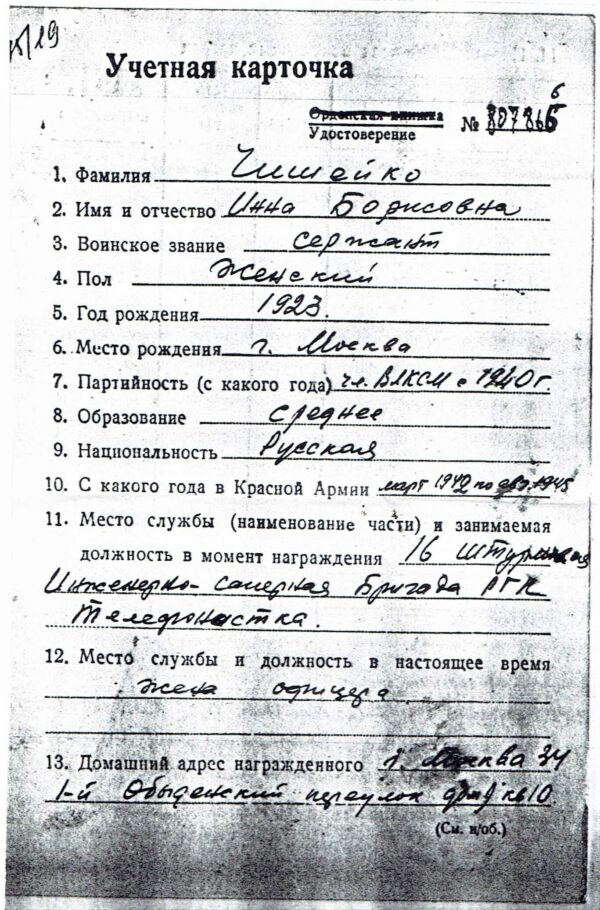 Учетная карточка
Орденская книжка
Удостоверение № 807866
6
1. Фамилия Чишейко
2. Имя и отчество Инна Борисовна
3. Воинское звание сержант
4. Пол Женский
5. Год рождения 1923.
6. Место рождения г. Москва
7. Партийность (с какого года) чл. ВЛКСМ с 1940 г.
8. Образование среднее
9. Национальность Русская
10. С какого года в Красной Армии март 1942 по 1945
11. Место службы (наименование части) и занимаемая
должность в момент награждения 16 штурмовая
Инженерно-саперная Бригада РГК
Телефонистка.
12. Место службы и должность в настоящее время
жена офицера
13. Домашний адрес награжденного г. Москва 34
1-й Обыденский переулок дом 9 кв 10
(См. н/об.)